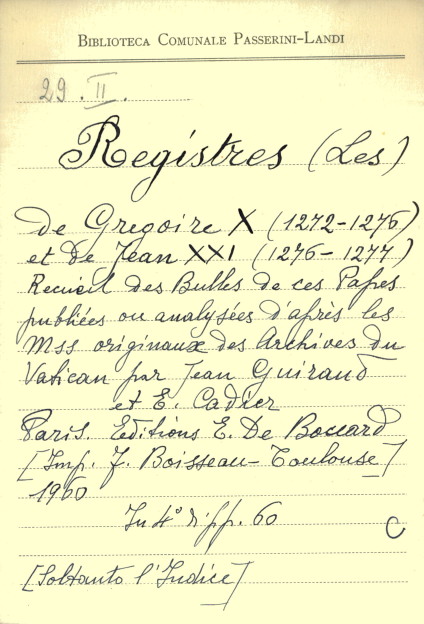 BIBLIOTECA COMUNALE PASSERINI-LANDI
29. II.
Registres (Les)
de Gregoire X (1272-1276)
et de Jean XXI (1276-1277)
Recueil des Bulles de ces Papes
publiées ou analysées d'après les
Mss originaux des Archives du
Vatican par Jean Guiraud
et E. Cadier
Paris. Editions E. De Boccard
[Imp. J. Boisseau-Toulouse]
1960
In 4° di pp. 60
C
[Soltanto l'Indice]